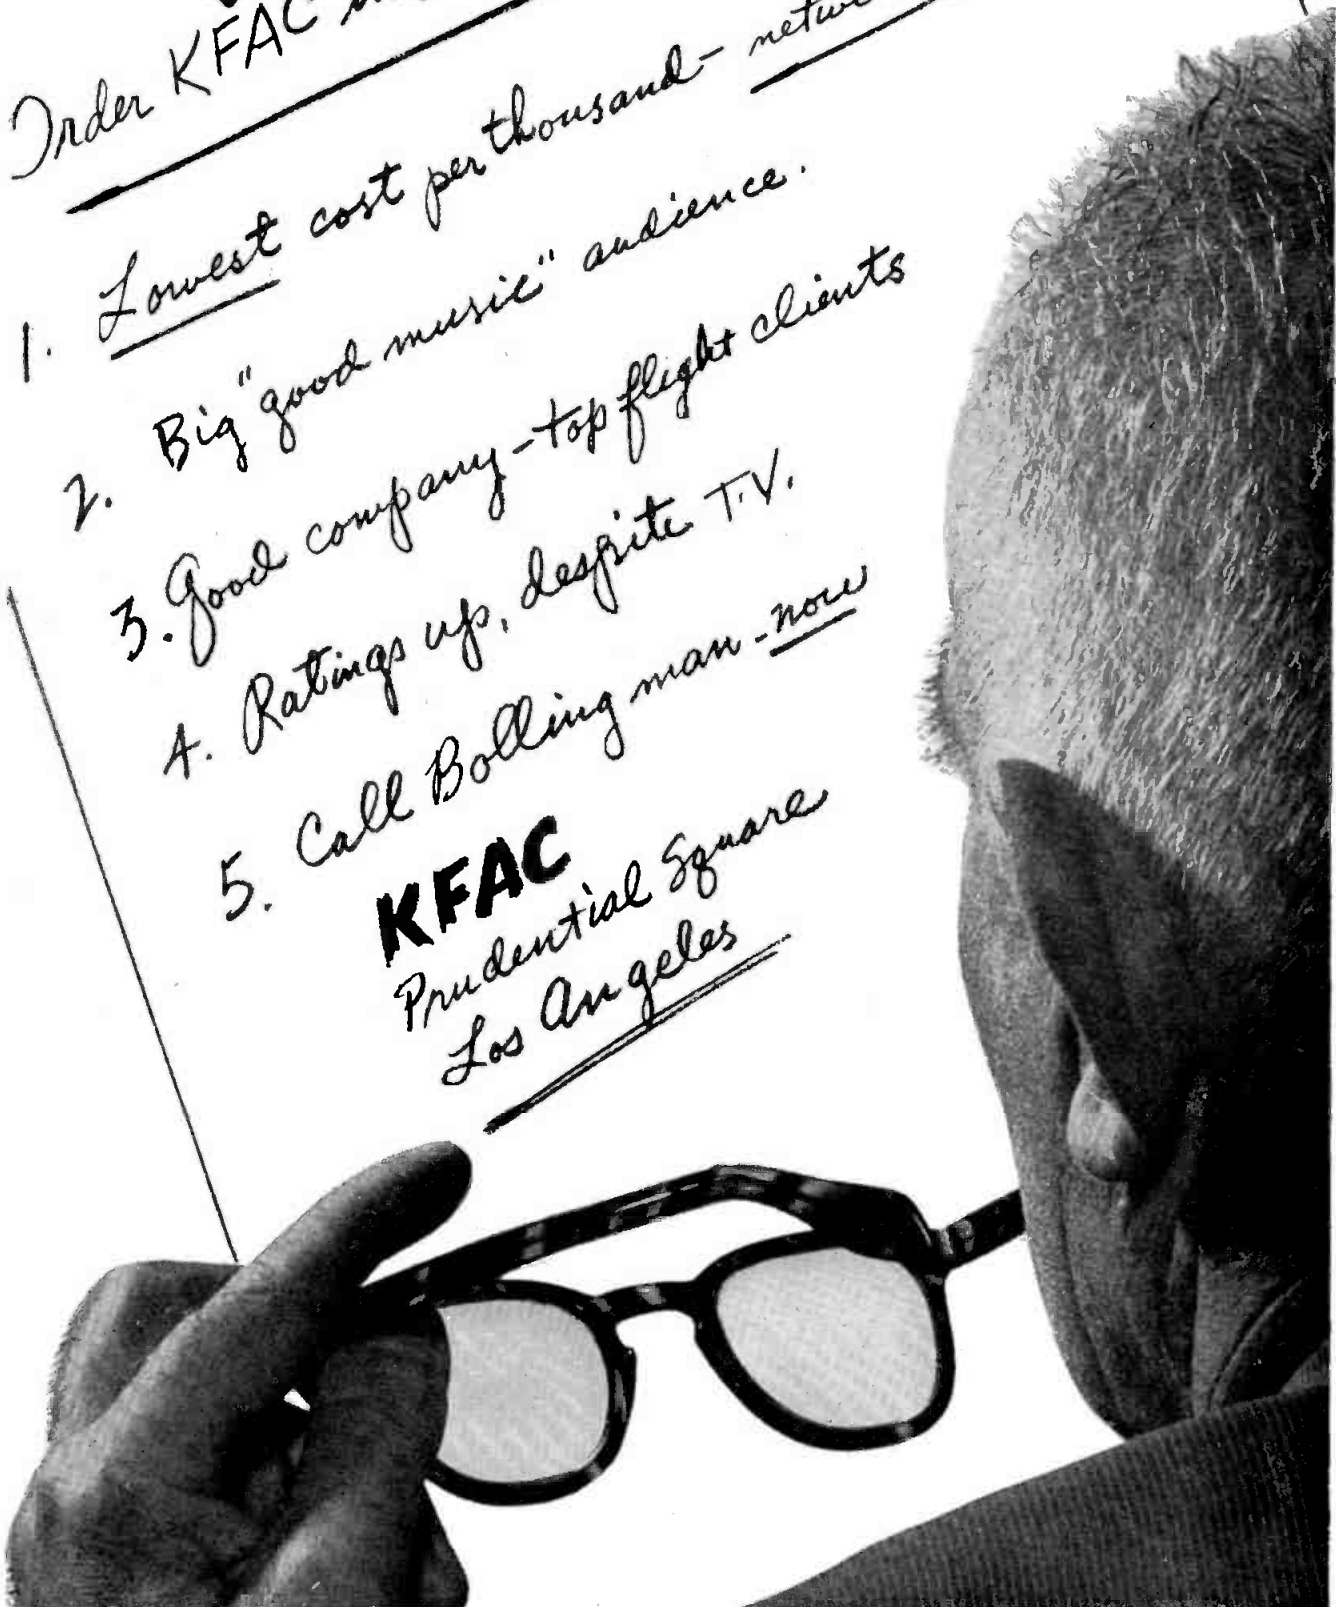 Order KFAC
1. Lowest cost per thousand-
2. Big "good music" audience.
3. Good company - top flight clients
4. Ratings up, despite T.V.
5. Call Bolling man - now
KFAC
Prudential Square
Los Angeles